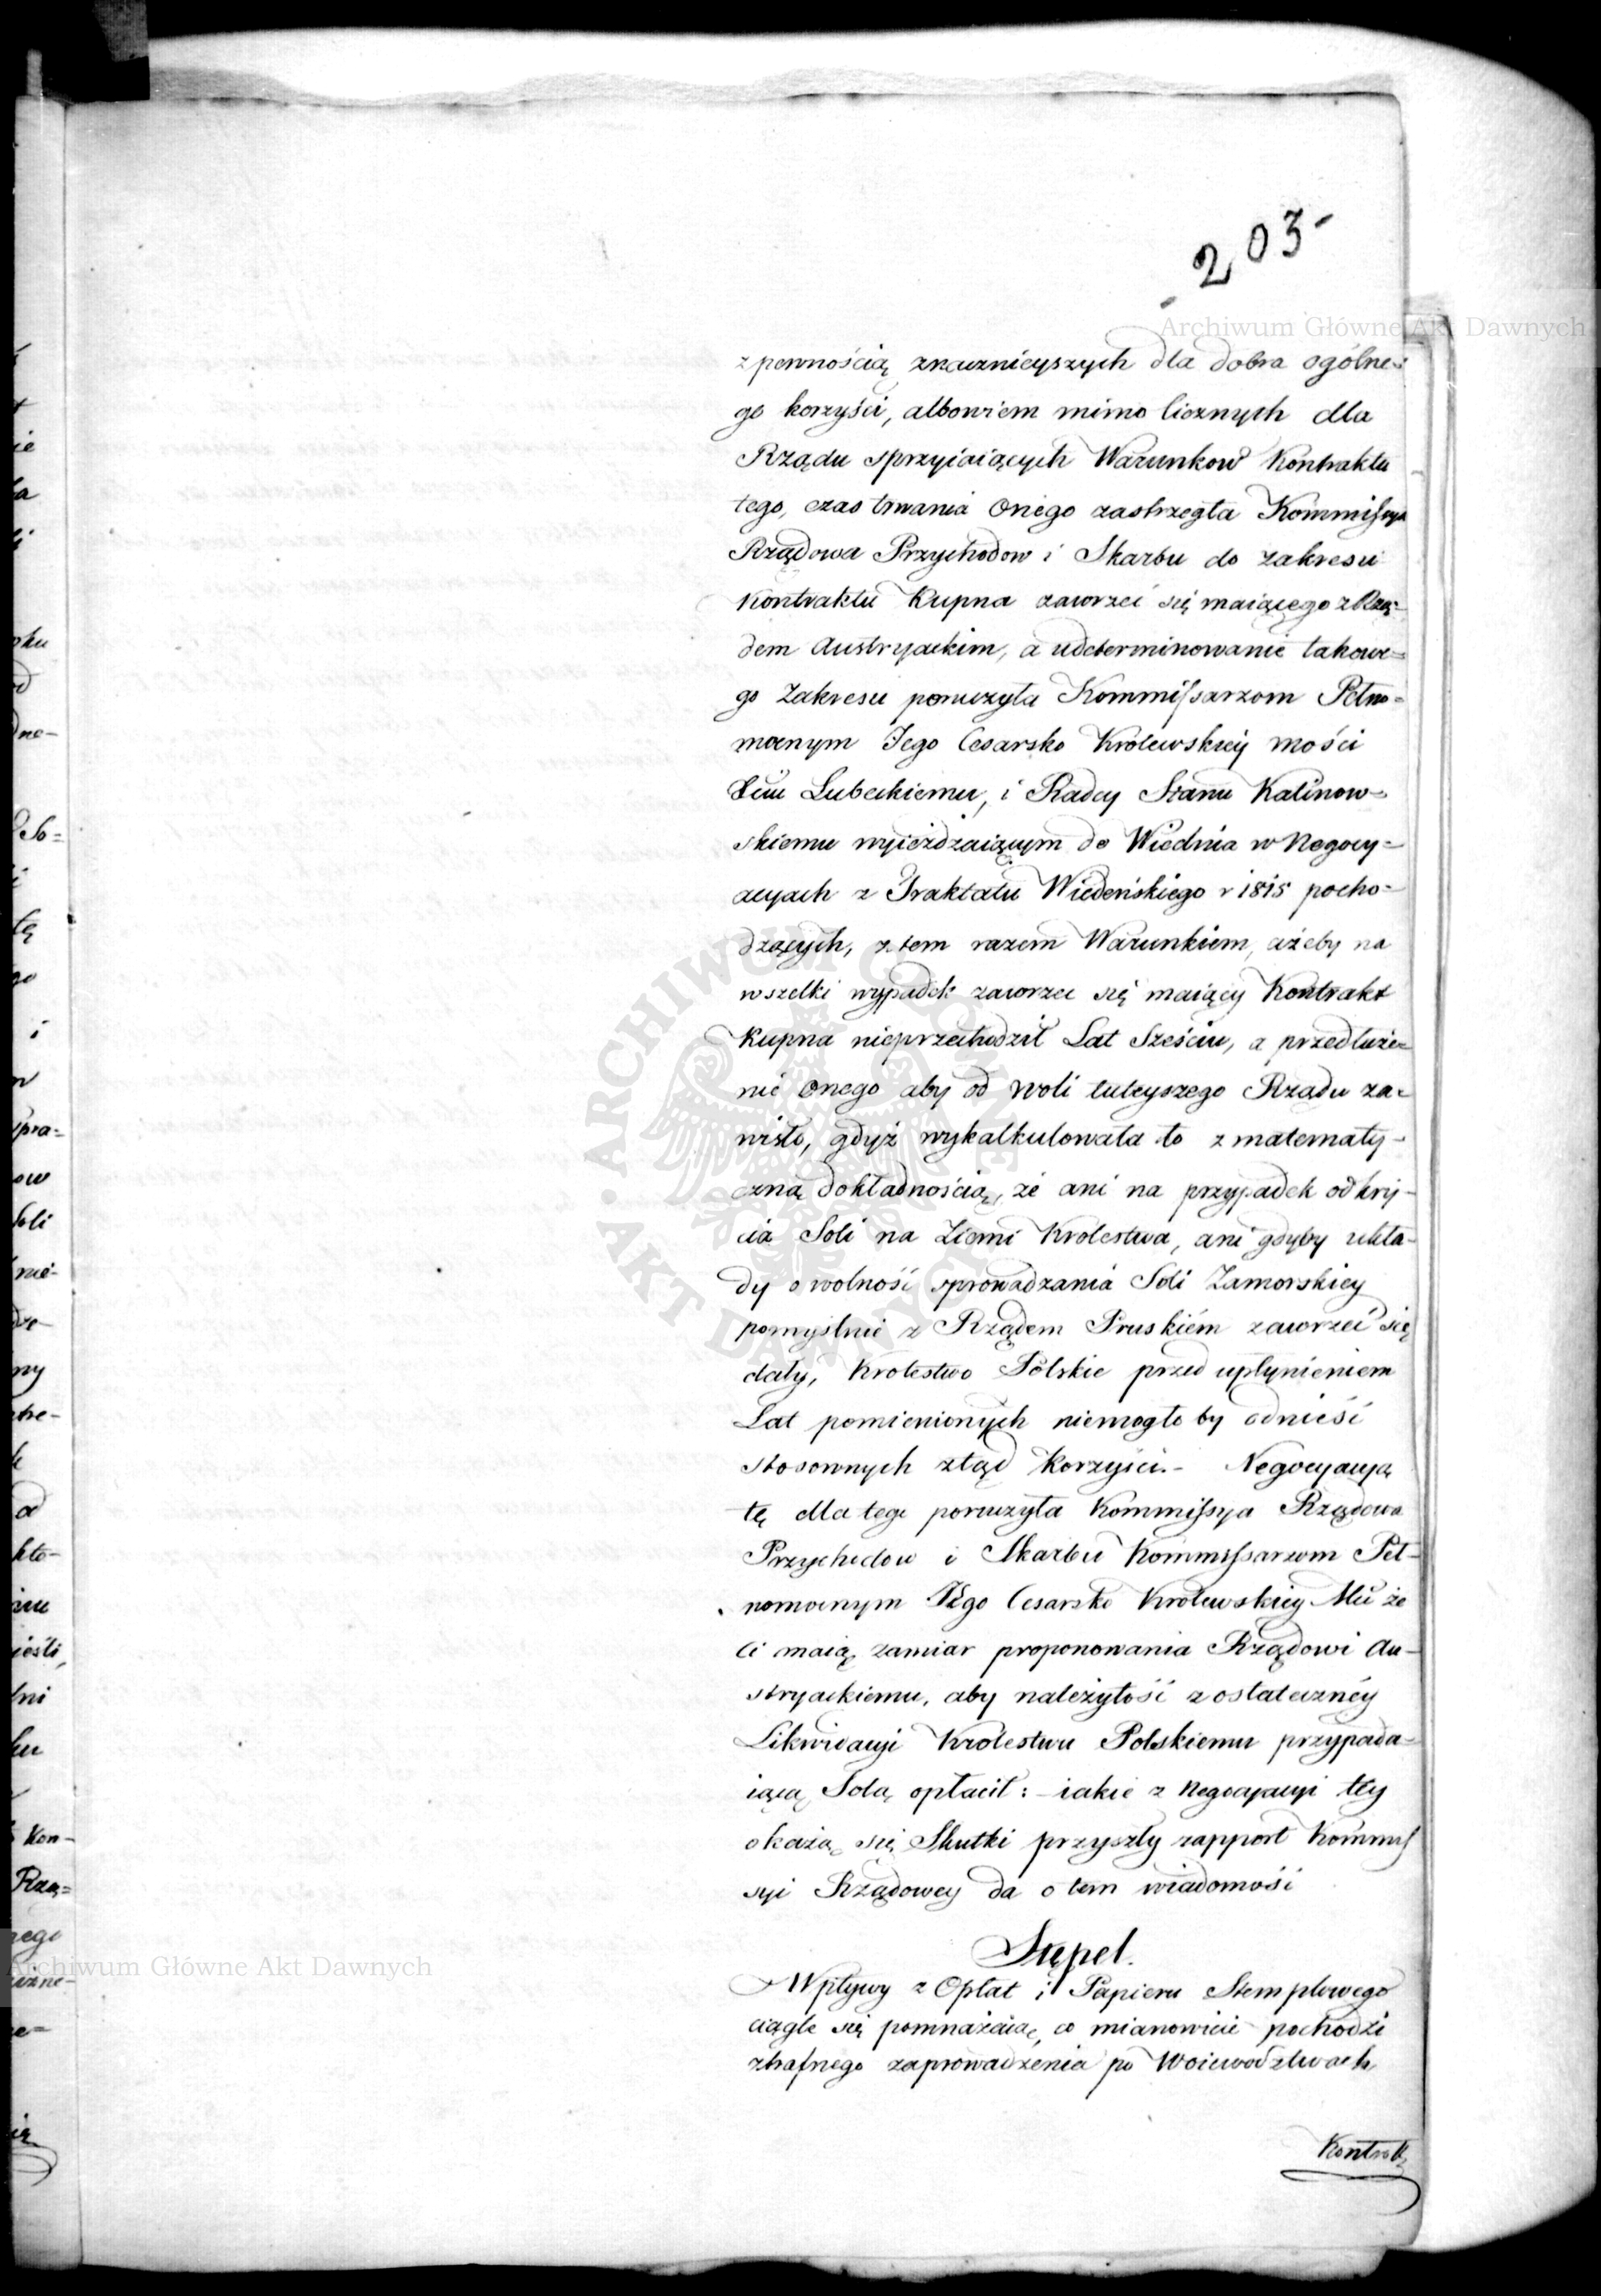 203
Archiwum Główne Akt Dawnych
z pewnością znacznieyszych dla dobra ogólne=
go korzyści, albowiem mimo licznych dla
Rządu sprzyiaiących Warunkow Kontraktu
tego, czas trwania Onego zastrzegła Kommissya
Rządowa Przychodow i Skarbu do zakresu
Kontraktu Kupna zawrzeć się maiącego z Rzą=
dem Austryackim, a udeterminowanie takowe=
go Zakresu poruczyła Kommissarzom Pełno=
mocnym Jego Cesarsko Królewskiey mości
Xciu Lubeckiemu, i Radcy Stanu Kalinow=
skiemu wyieżdzaiącym do Wiednia w Negocy=
acyach z Traktatu Wiedeńskiego r 1815 pocho=
dzących, z tem razem Warunkiem, ażeby na
wszelki wypadek zawrzec się maiący Kontrakt
Kupna nieprzechodził Lat Sześciu, a przedłuże=
nie Onego aby od woli tuteyszego Rządu za=
wisło, gdyż wykalkulowała to z matematy=
czną dokładnością, że ani na przypadek odkry=
cia Soli na Ziemi Krolestwa, ani gdyby ukła=
dy o wolność sprowadzania Soli Zamorskiey
pomyślnie z Rządem Pruskiém zawrzeć się
dały, Krolestwo Polskie przed upłynieniem
Lat pomienionych niemogło by odnieść
stosownych ztąd Korzyści.- Negocyacyą
tę dla tego poruczyła Kommissya Rządowa
Przychodow i Skarbu Kommissarzom Peł=
nomocnym Jego Cesarsko Królewskiey Mci że
Ci maią zamiar proponowania Rządowi Au=
stryackiemu, aby należytość z ostateczney
Likwidacyi Królestwu Polskiemu przypada=
iącą Solą opłacił: - iakie z Negocyacyi tey
okażą się Skutki przyszły rapport Kommis
syi Rządowey da o tem wiadomość
Stępel.
Wpływy z Opłat i Papieru Stemplowego
ciągle się pomnażaią, co mianowicie pochodzi
ztrafnego zaprowadzenia po Woiewodztwach
Archiwum Główne Akt Dawnych
ARCHIWUM GŁÓWNE AKT DAWNYCH